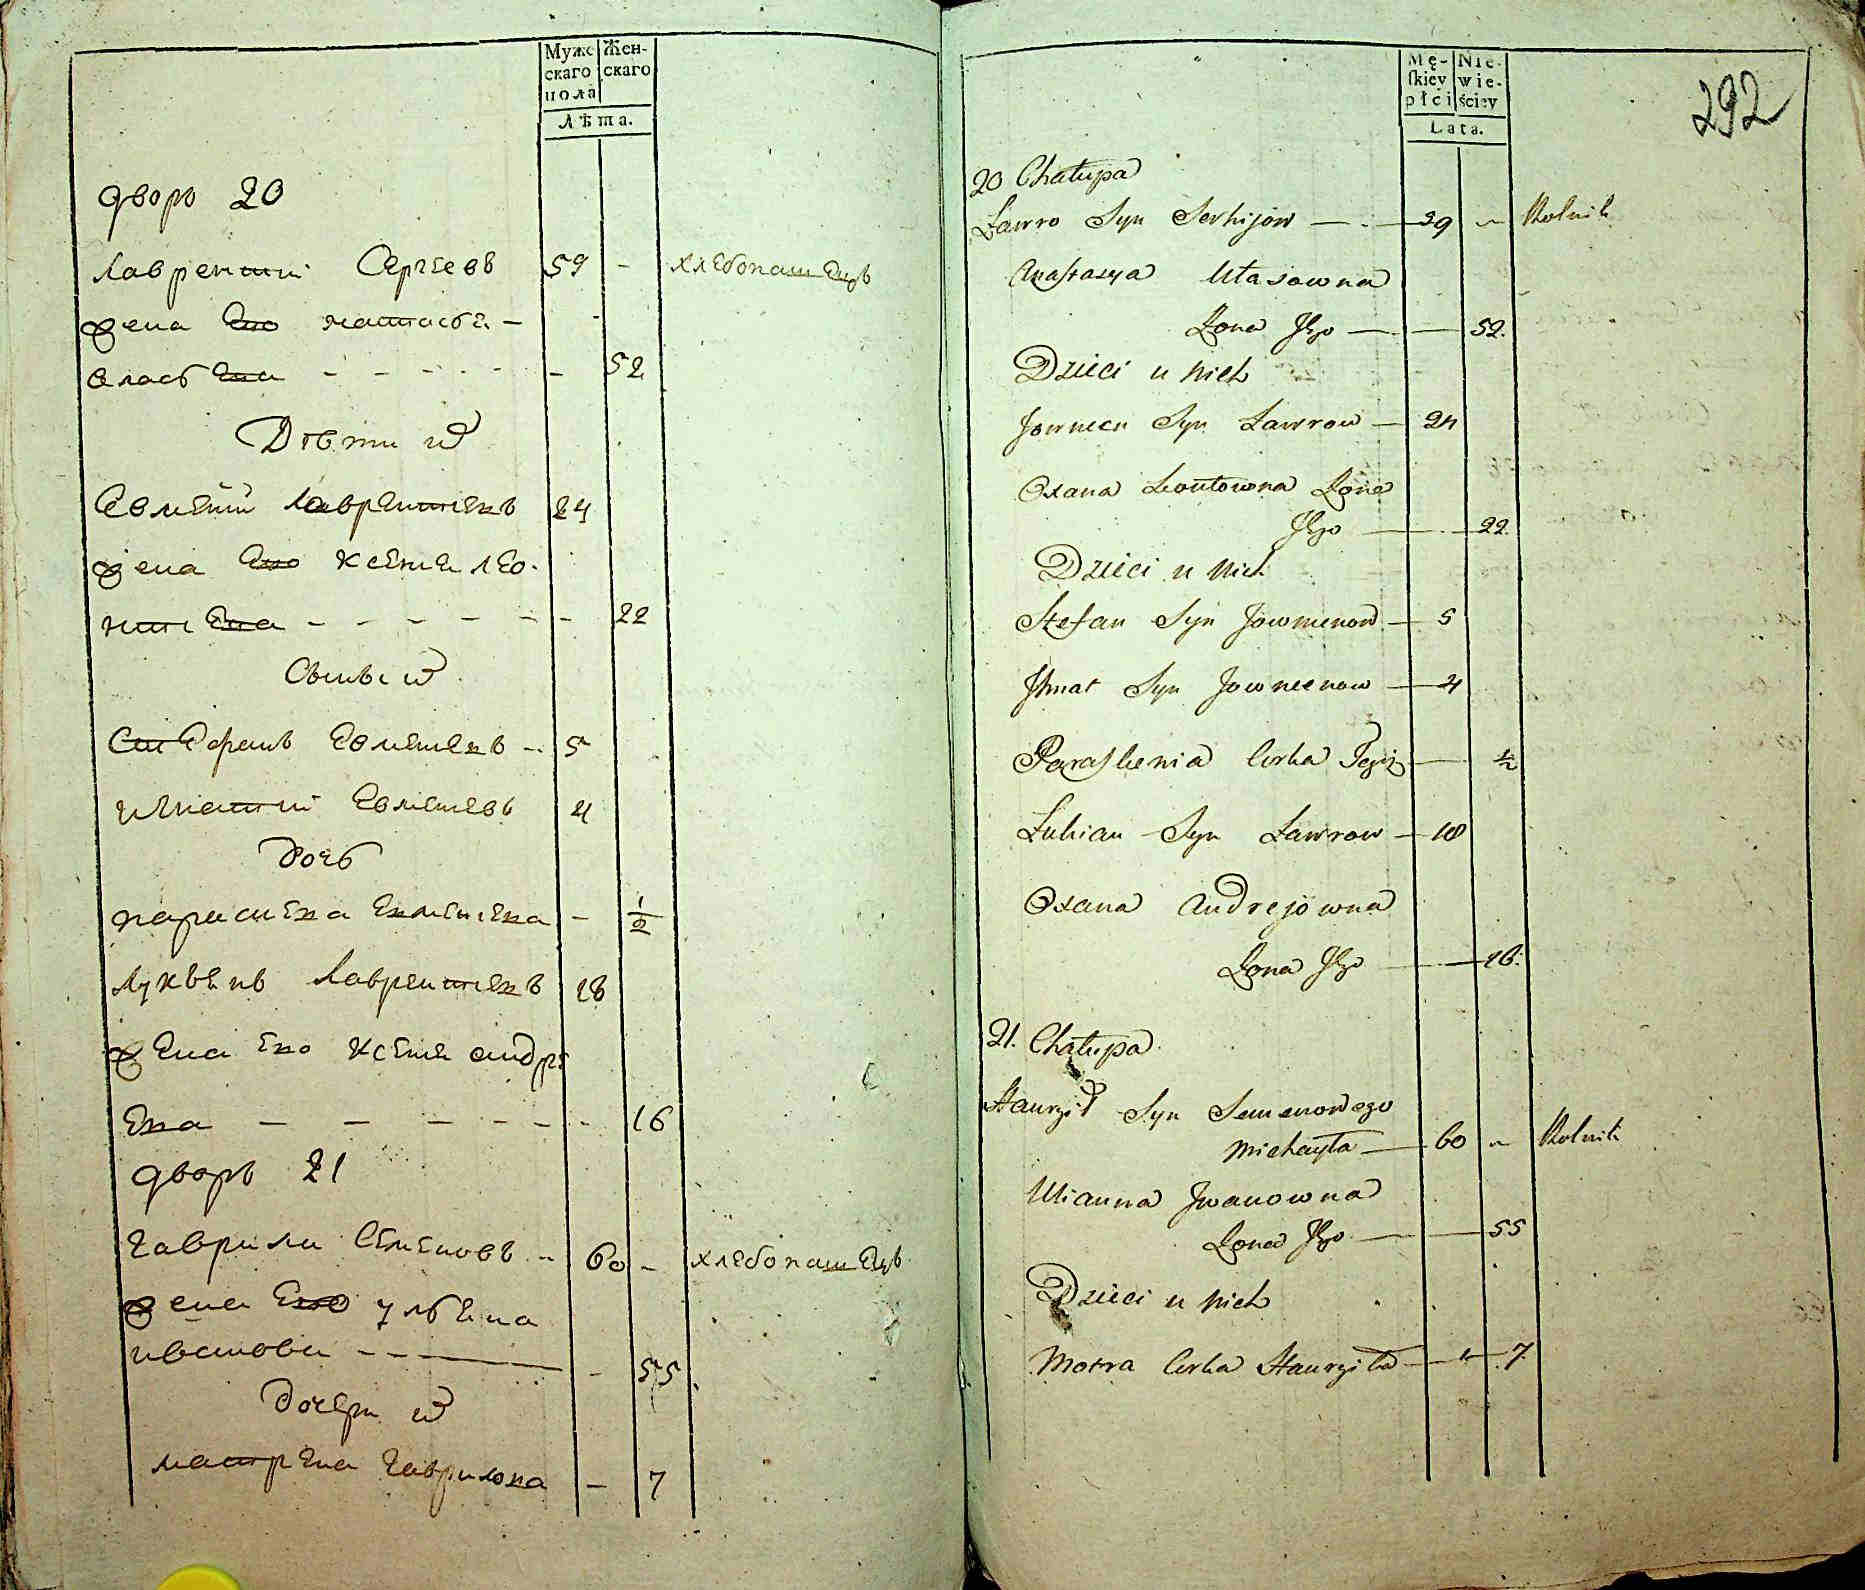 Муже
скаго
пола
Жен-
скаго
Лѣта.
дворъ 20
Лаврентий Сергѣевъ 59 - хлебопашецъ
жена его настасья -
власьева - - - - - - 52
Дѣти их
Евмений Лаврентьевъ 24
жена его ксения лео-
нтиева - - - - - - 22
Сыны их
Стефанъ Евменьевъ - 5
игнатий Евменьевъ 4
дочь
парасиева Евмениева - 1/2
Лукьянъ Лаврентьевъ 18
жена его ксения андре
ева - - - - - - 16
дворъ 21
гаврила Семеновъ - 60 - хлебопашецъ
жена его ульяна
иванова - - - - 55
дочери их
матрена гаврилова - 7
292
Mę-
skiey
płci
Nie-
wie-
ściey
Lata.
20 Chałupa
Ławro Syn Serhijow — 59 " Rolnik
Anastasya Ułasowna
Żona Jego — — 52.
Dzieci u nich
Jowmen Syn Ławrow — 24
Oxana Leontowna Żona
Jego — — 22.
Dzieci u nich
Stefan Syn Jowmenow — 5
Ihnat Syn Jowmenow — 4
Paraskewia Corka Tegoż — 1/2
Łukian Syn Ławrow — 18
Oxana Andrejowna
Żona Jego — — 16.
21. Chałupa
Hawryił Syn Semenowego
Michayła — 60 " Rolnik
Ulianna Jwanowna
Żona Jego — — 55
Dzieci u nich
Motra Corka Hawryiła — " — 7.